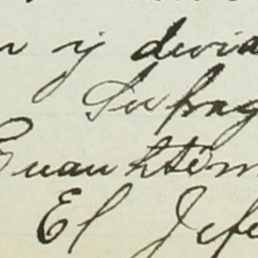 n y devid
Sufrag
Guauhtém
El Jefe